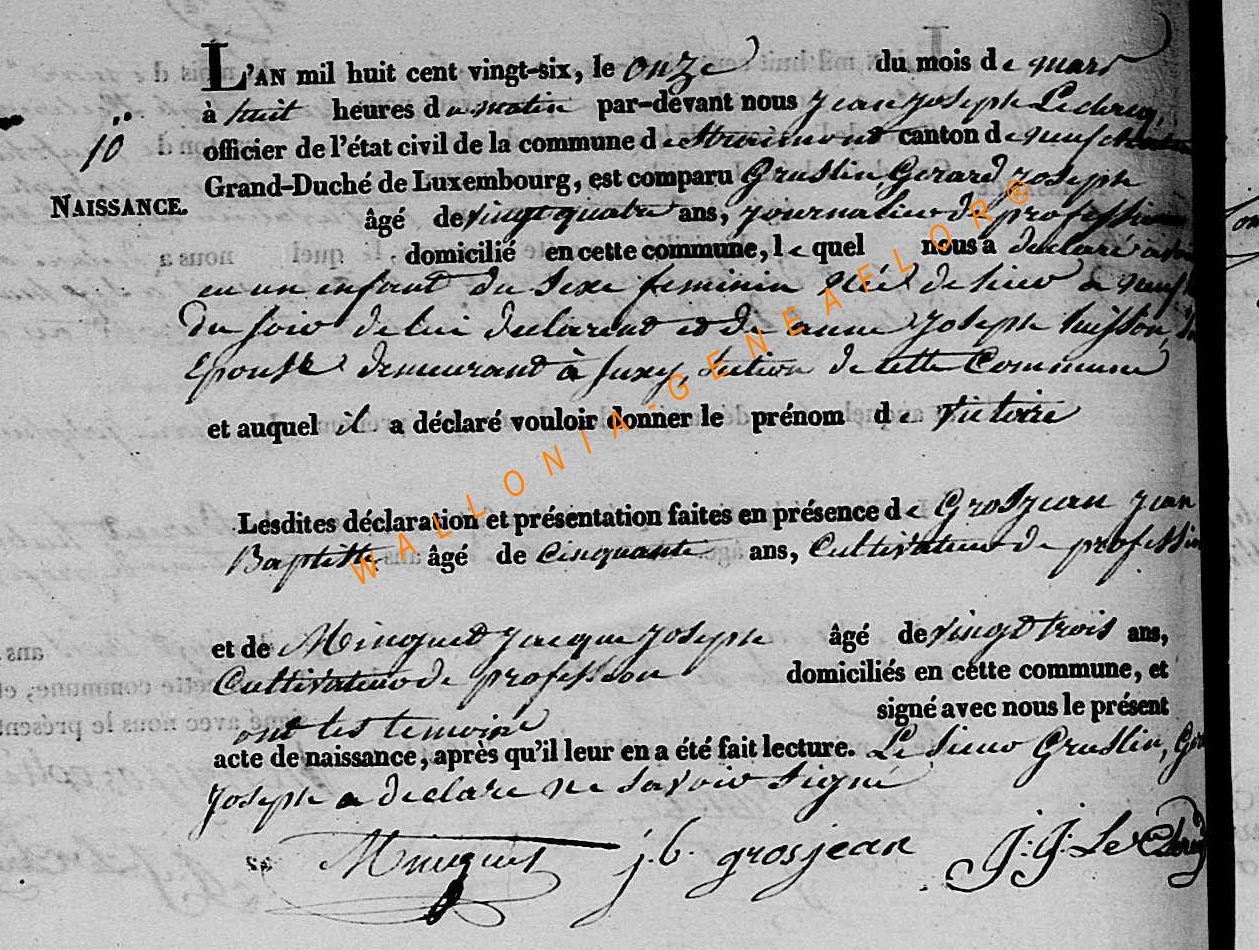 L'AN mil huit cent vingt-six, le onze du mois de mars
à huit heures du matin par-devant nous Jean Joseph Leclercq,
officier de l'état civil de la commune de Straimont canton de neufchateau
10
Grand-Duché de Luxembourg, est comparu Gruslin, Gerard Joseph
NAISSANCE.
âgé de vingt quatre ans, journalier de profession
domicilié en cette commune, le quel nous a declaré avoir
eu un enfant du sexe feminin né de hier à neuf
du soir de lui declarant et de anne Joseph huisson,
Epouse demeurant à suxy, section de cette Commune
et auquel il a déclaré vouloir donner le prénom de Victoire
Lesdites déclaration et présentation faites en présence de Grosjean jean
Baptiste âgé de cinquante ans, Cultivateur de profession
et de Minguet jacque joseph âgé de vingt trois ans,
Cultivateur de profession domiciliés en cette commune, et
ont les temoins signé avec nous le présent
acte de naissance, après qu'il leur en a été fait lecture. Le sieur Gruslin,
Joseph a declare ne savoir signé
Minguet j.b. grosjean J:J: Le Clercq
WALLONIA-GENEAFLOR®